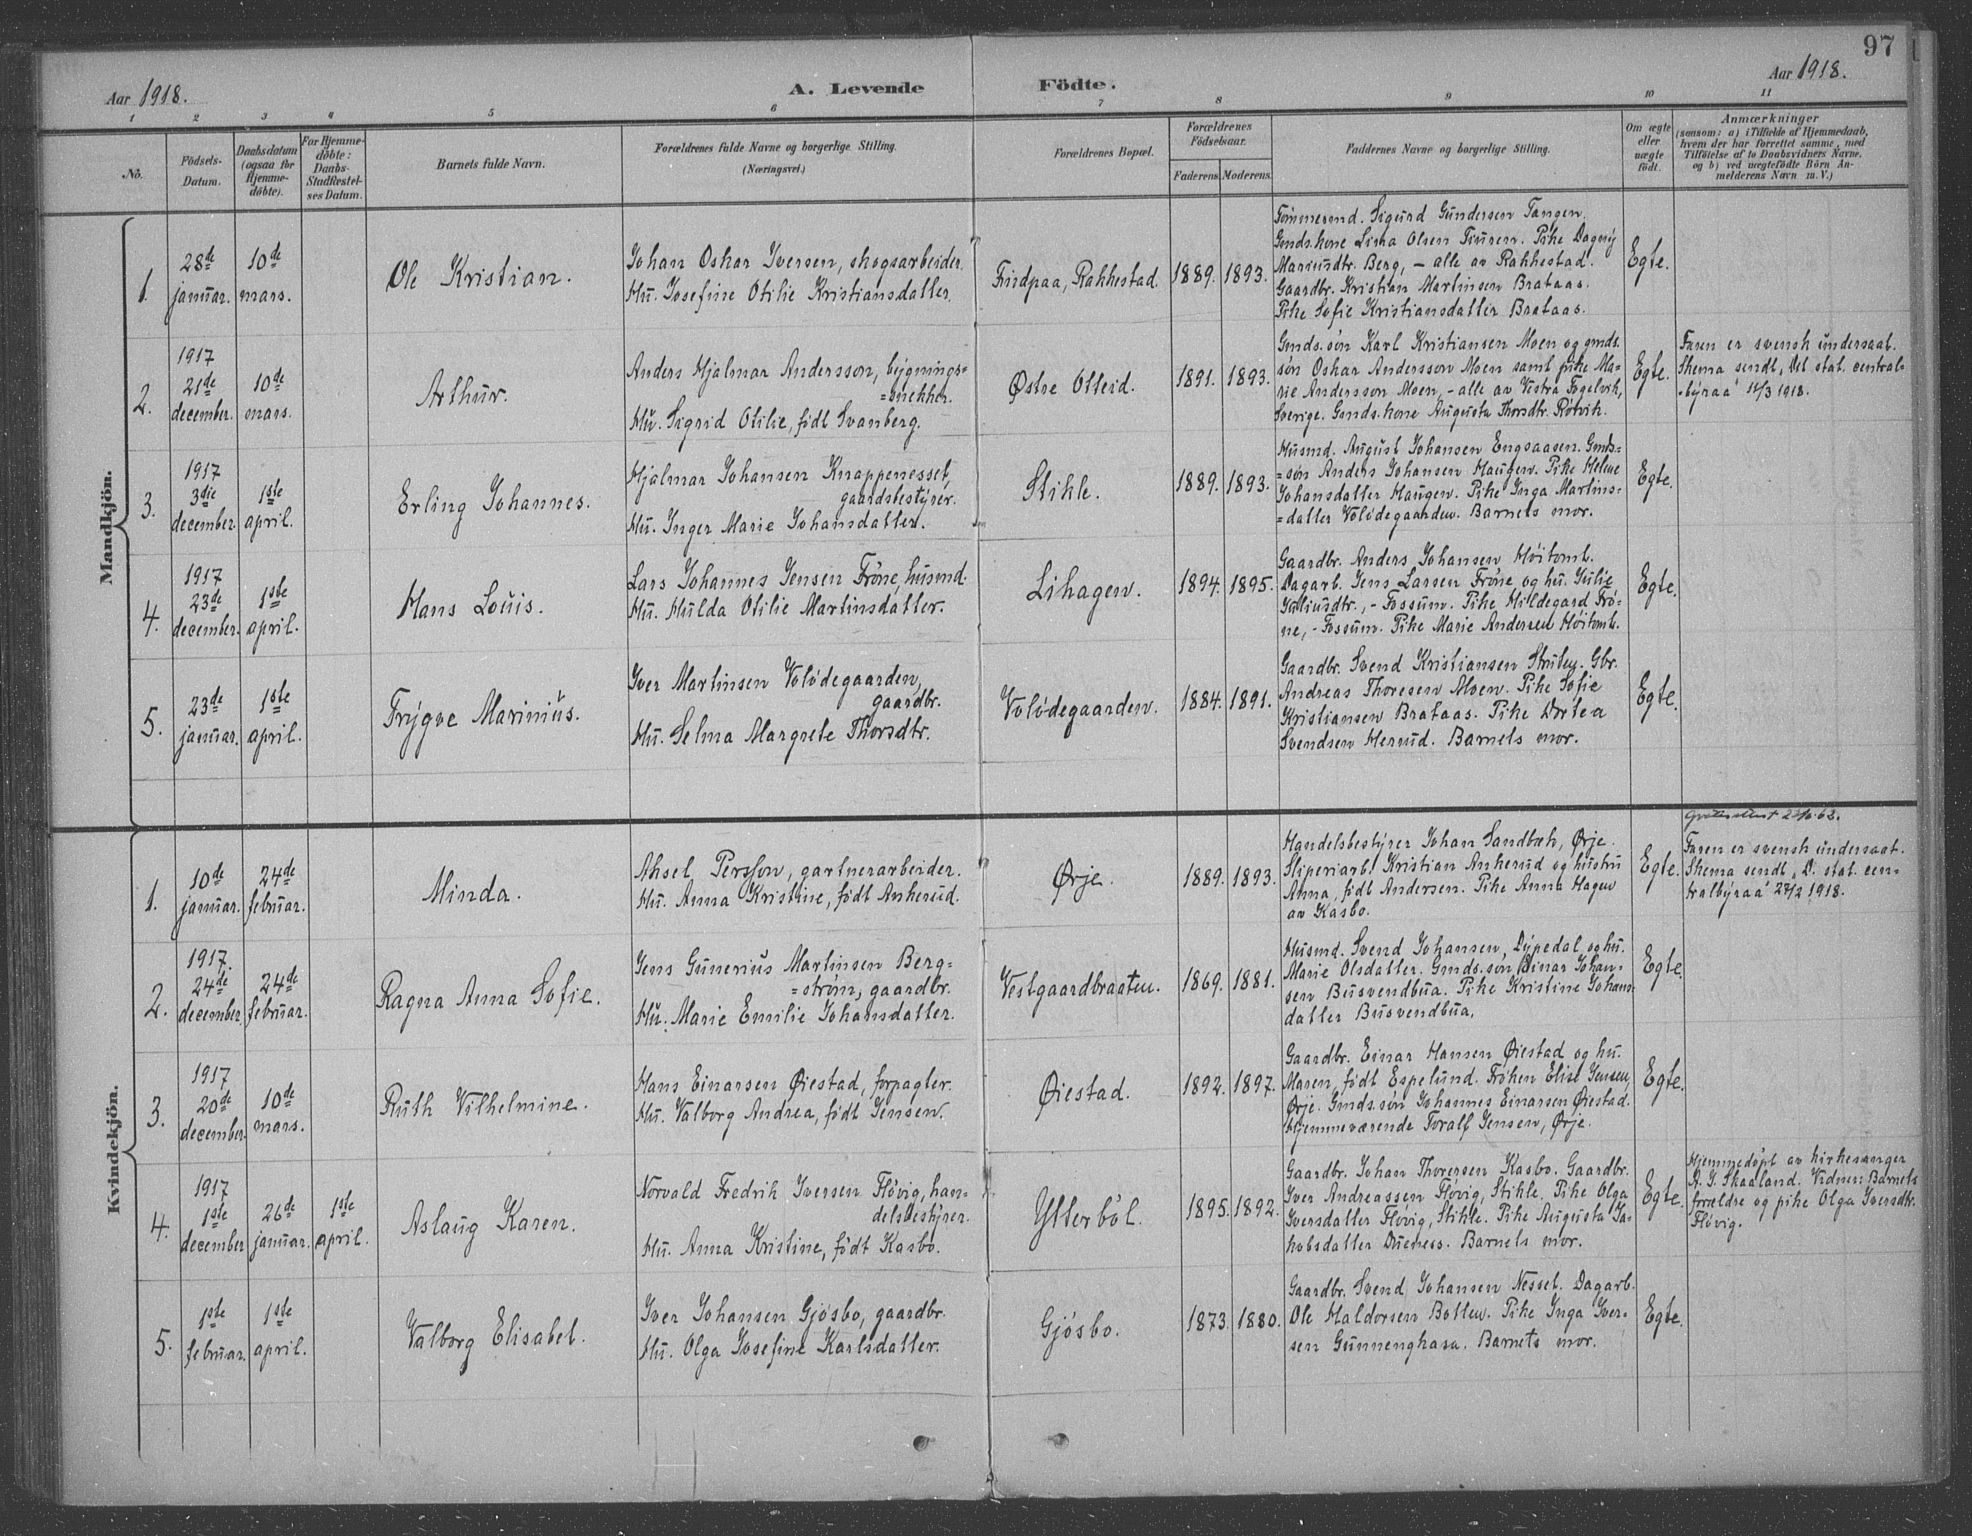 97
Aar 1918.
A. Levende Födte.
Aar 1918.
1 2 3 4 5 6 7 8 9 10 11
No.
Födsels-
Datum.
Daabsdatum
(ogsaa for
Hjemme-
döbte).
For Hjemme-
döbte:
Daabs-
Stadfæstel-
ses Datum.
Barnets fulde Navn.
Forældrenes fulde Navne og borgerlige Stilling.
(Næringsvei.)
Forældrenes Bopæl.
Forældrenes
Födselsaar.
Faderens. Moderens.
Faddernes Navne og borgerlige Stilling.
Om ægte
eller
uægte
födt.
Anmærkninger
(saasom: a) i Tilfælde af Hjemmedaab,
hvem der har forrettet samme, med
Tilföielse af to Daabsvidners Navne,
og b) ved uægtefödte Börn An-
melderens Navn m. V.)
Mandkjön.
1.
28de
januar.
10de
mars.
Ole Kristian.
Johan Oskar Iversen, skogsarbeider.
Hu. Josefine Otilie Kristiansdatter.
Rakkestad.
1889. 1893.
Tømmermd. Sigurd Gundersen Tangen.
Gmds.kone Lina Olsen Pike Dagny
Mariusdtr. Berg, – alle av Rakkestad.
Gaardbr. Kristian Martinsen Brataas.
Pike Sofie Kristiansdatter Brataas.
Egte.
2.
1917
21de
december.
10de
mars.
Arthur.
Anders Hjalmar Andersson, bygnings=
=snekker.
Hu. Sigrid Otilie, født Svanberg.
Østre Otteid.
1891. 1893.
Gmds.søn Karl Kristiansen Moen og gmds.
søn Oskar Andersson Moen samt pike Ma-
rie Andersson Moen, – alle av Vestra Fogelvik,
Sverige. Gmds.kone Augusta Thorsdtr. Rørvik.
Egte.
Faren er svensk undersaat.
Skema sendt „Det stat. central-
byraa“ 11/3 1918.
3.
1917
3die
december.
1ste
april.
Erling Johannes.
Hjalmar Johansen Knappenesset,
gaardsbestyrer.
Hu. Inger Marie Johansdatter.
Stikle.
1889. 1893.
Husmd. August Johansen Engsaasen. Gmds=
=søn Anders Johansen Haugen. Pike Helene
Johansdatter Haugen. Pike Inga Martins=
=datter Volødegaarden. Barnets mor.
Egte.
4.
1917
23de
december.
1ste
april.
Hans Louis.
Lars Johannes Jensen Frøne, husmd.
Hu. Hulda Otilie Martinsdatter.
Lihagen.
1894. 1895.
Gaardbr. Anders Johansen Høitomt.
Dagarb. Jens Larsen Frøne og hu. Julie
Juliusdtr., – Fossum. Pike Hildegard Frø-
ne, – Fossum. Pike Marie Andersen Høitomt.
Egte.
5.
23de
januar.
1ste
april.
Trygve Marinius.
Iver Martinsen Volødegaarden,
gaardbr.
Hu. Selma Margrete Thorsdtr.
Volødegaarden.
1884. 1891.
Gaardbr. Svend Kristiansen Gbr.
Andreas Thoresen Moen. Pike Sofie
Kristiansen Brataas. Pike Dortea
Svendsen Hersud. Barnets mor.
Egte.
Kvindekjön.
1.
10de
januar.
24de
februar.
Minda.
Aksel Persson, gartnerarbeider.
Hu. Anna Kristine, født Ankerud.
Ørje.
1889. 1893.
Handelsbestyrer Johan Sandbæk, Ørje.
Sliperiarb. Kristian Ankerud og hustru
Anna, født Andersen. Pike Anna Hagen
av Kasbo.
Egte.
Faren er svensk undersaat.
Skema sendt „D. stat. cen-
tralbyraa“ 27/2 1918.
2.
1917.
24de
december.
24de
februar.
Ragna Anna Sofie.
Jens Gunerius Martinsen Berg=
=strøm, gaardbr.
Hu. Marie Emilie Johansdatter.
Vestgaardbraaten.
1869. 1881.
Husmd. Svend Johansen, Dypedal, og hu.
Marie Olsdatter. Gmds.søn Einar Johan-
sen Busvendbua. Pike Kristine Johans-
datter Busvendbua.
Egte.
3.
1917
20de
december.
10de
mars.
Ruth Vilhelmine.
Hans Einarsen Øiestad, forpagter.
Hu. Valborg Andrea, født Jensen.
Øiestad.
1892. 1897.
Gaardbr. Einar Hansen Øiestad og hu.
Maren, født Espelund. Frøken Elise Jensen,
Ørje. Gmds.søn Johannes Einarsen Øiestad.
Hjemmeværende Toralf Jensen, Ørje.
Egte.
4.
1917
1ste
december
26de
januar.
1ste
april.
Aslaug Karen.
Norvald Fredrik Iversen Fløvig, han-
delsbestyrer.
Hu. Anna Kristine, født Kasbo.
Ytterbøl.
1895. 1892.
Gaardbr. Johan Thoresen Kasbo. Gaardbr.
Iver Andreassen Fløvig, Stikle. Pike Olga
Iversdatter Fløvig, Stikle. Pike Augusta Ja-
kobsdatter Duenæs. Barnets mor.
Egte.
Hjemmedøpt av kirkesanger
A. G. Skaaland. Vidner: Barnets
forældre og pike Olga Iversdtr.
Fløvig.
5.
1ste
februar.
1ste
april.
Valborg Elisabet.
Iver Johansen Gjøsbo, gaardbr.
Hu. Olga Josefine Karlsdatter.
Gjøsbo.
1873. 1880.
Gaardbr. Svend Johansen Nesset. Dagarb.
Ole Haldorsen Botten. Pike Inga Iver-
sen Gunnengkasa. Barnets mor.
Egte.